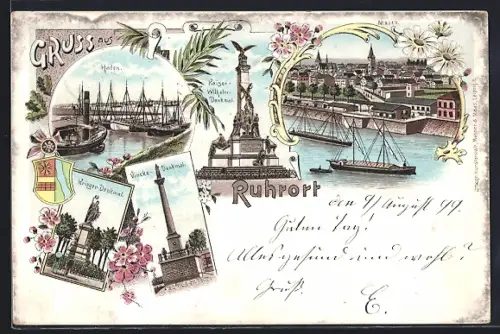 GRUSS aus
Hafen.
Kaiser-
Wilhelm-
Denkmal.
Krieger-Denkmal.
Vincke-Denkmal.
Ruhrort
den 9/ August 99.
Guten Tag!
Alles gesund und wohl?
Gruß.
E.